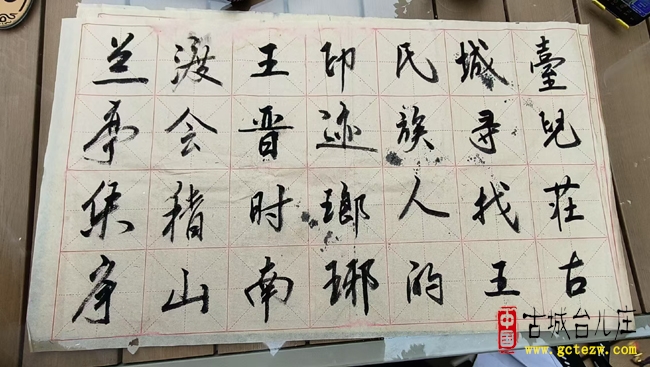 臺兒莊古
城寻找王
氏族人的
印迹瑯琊
王晋时南
渡会稽山
兰亭集序
中國 古城台儿庄
www.gctezw.com